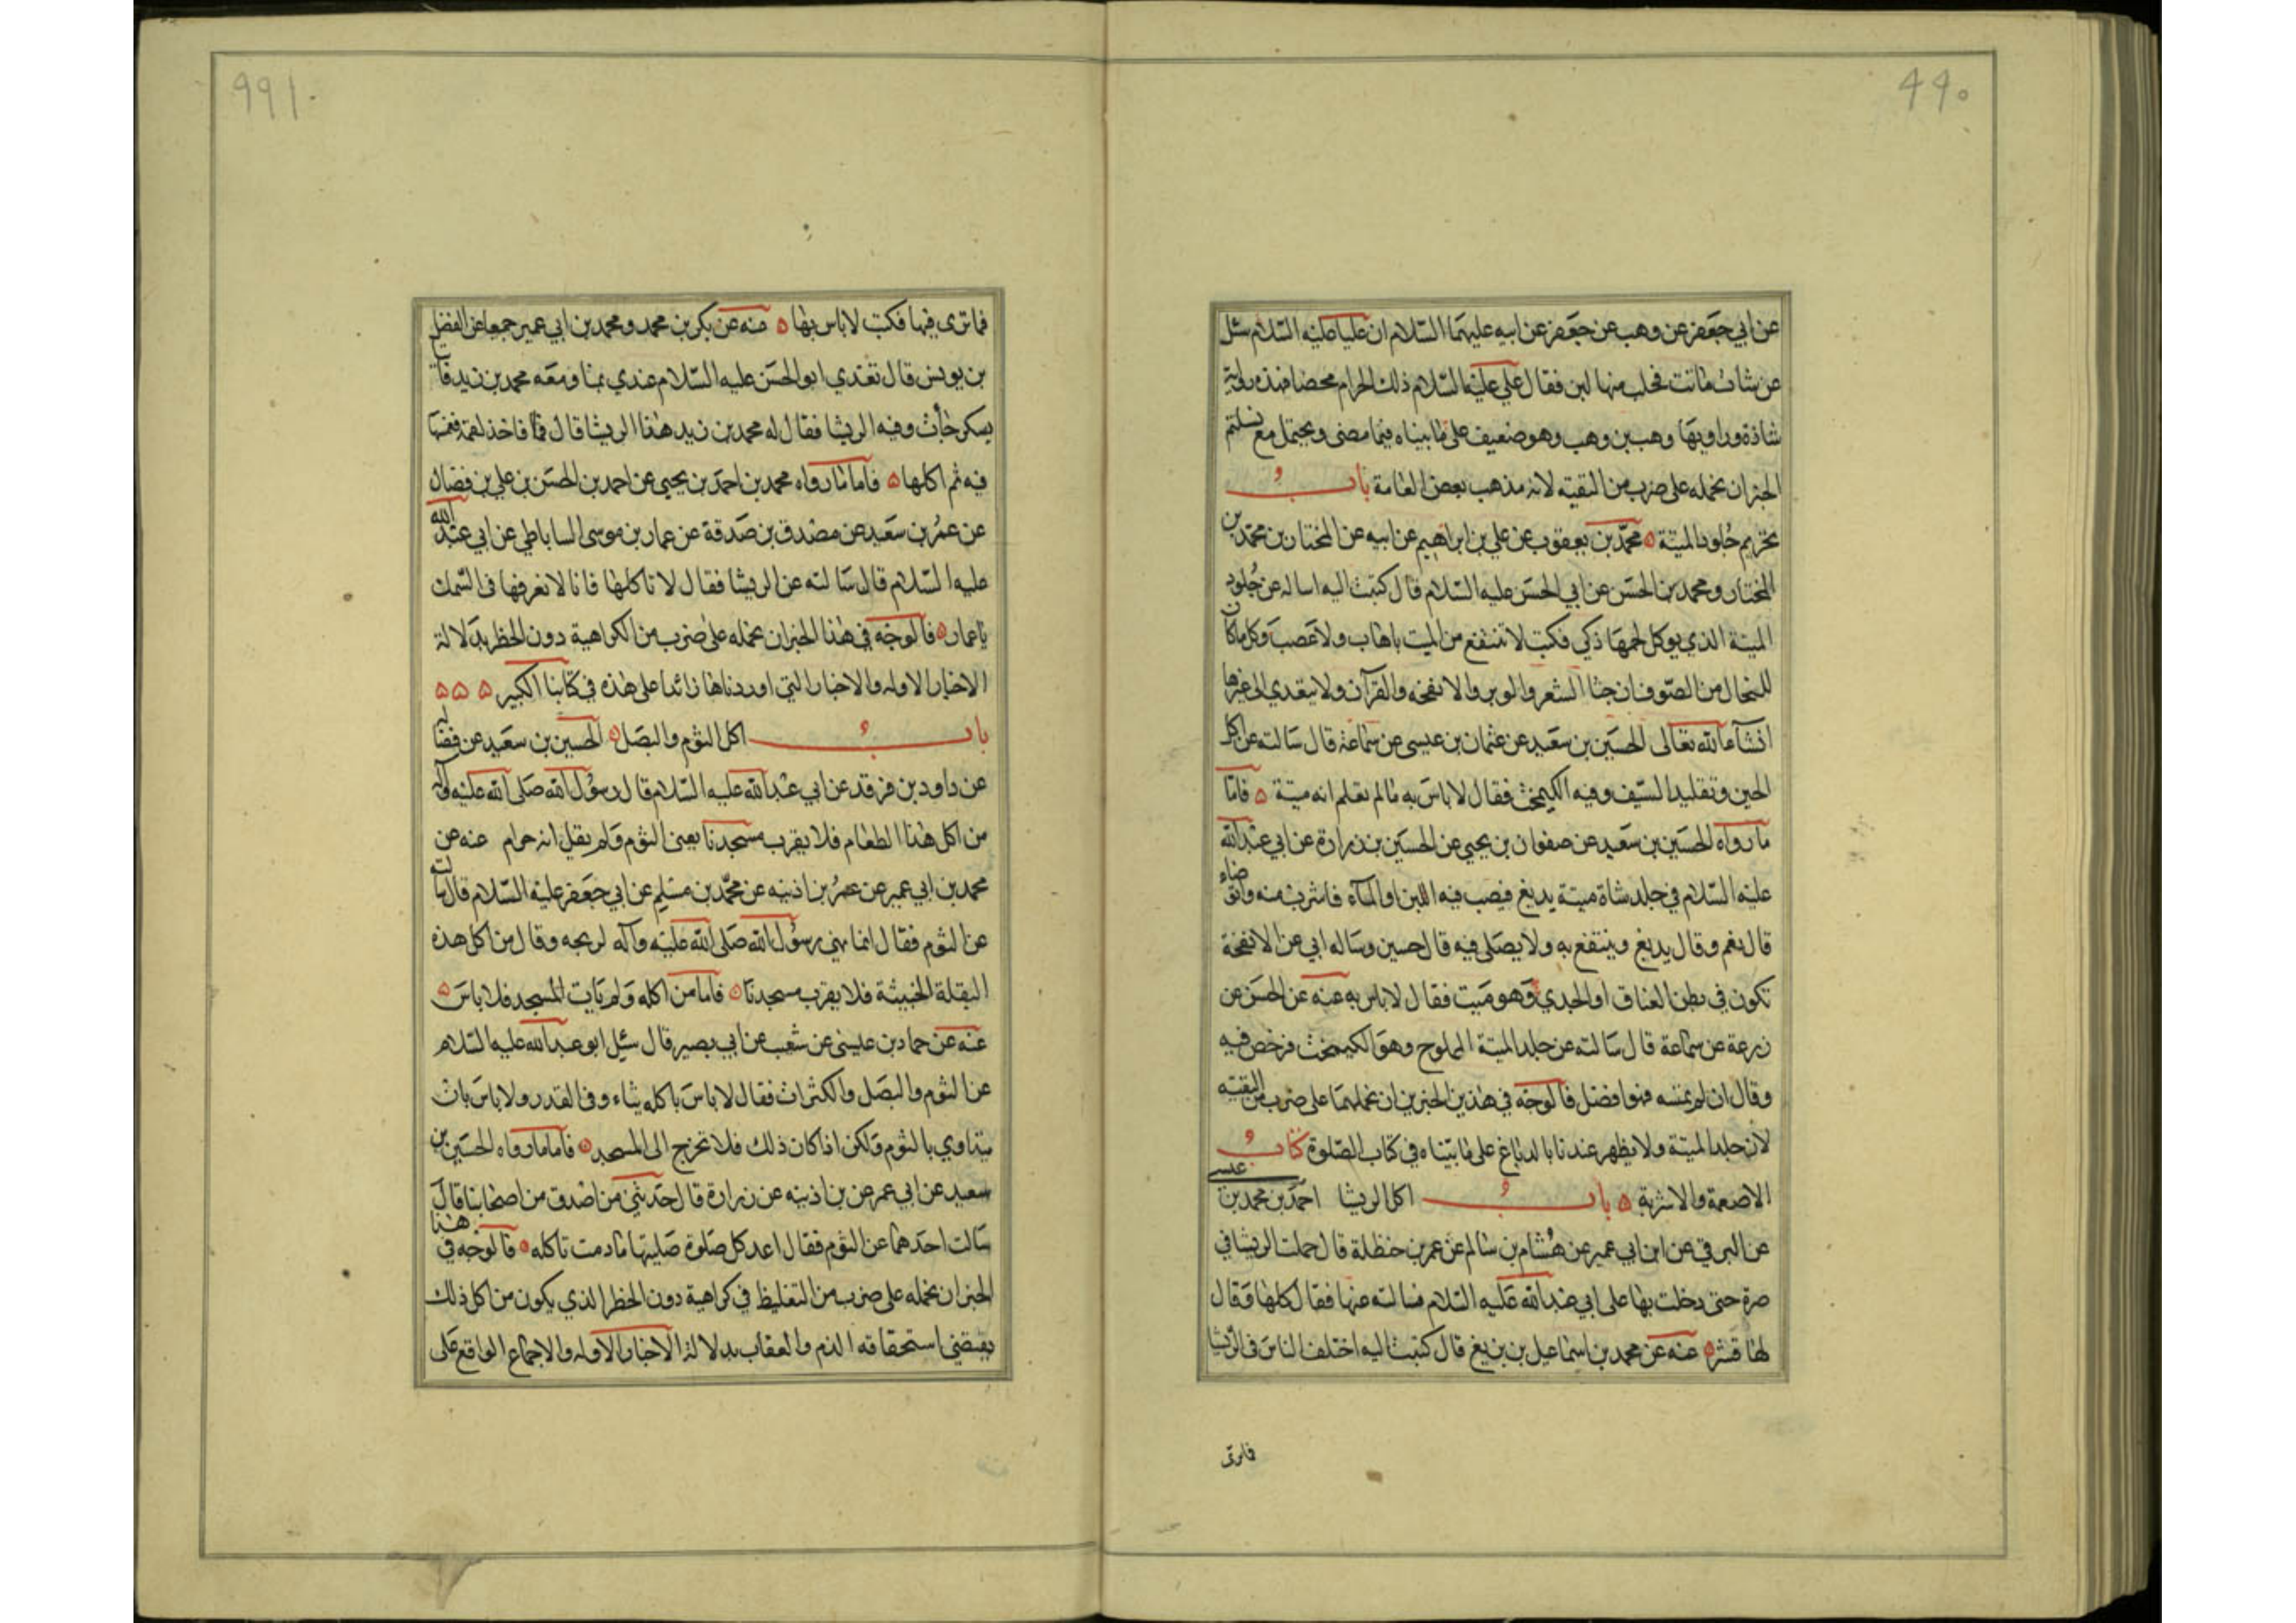 ٩٩٠
عن ابي جعفر عن وهب عن جعفر عن ابيه عليهما السلام ان عليا عليه السلام سئل
عن شاة ماتت فحلب منها لبن فقال علي عليه السلام ذلك الحرام محضا فهذه رواية
شاذة وراويها وهب بن وهب وهو ضعيف على ما بيناه فيما مضى ويحتمل مع تسليم
الخبر ان نحمله على ضرب من التقية لانه مذهب بعض العامة باب
تحريم جلود الميتة محمد بن يعقوب عن علي بن ابراهيم عن ابيه عن المختار بن محمد بن
المختار ومحمد بن الحسن عن ابي الحسن عليه السلام قال كتبت اليه اساله عن جلود
الميتة الذي يوكل لحمها ذكي فكتب لا تنتفع من الميت باهاب ولا عصب وكل ما كان
للنخال من الصوف ان جثا الشعر والوبر والانفخه والقرآن ولا يتعدى الى غيرها
انشآء الله تعالى الحسين بن سعيد عن عثمان بن عيسى عن سماعة قال سالته عن اكل
الجبن وتقليد السيف وفيه الكيمخت فقال لا باس به ما لم تعلم انه ميتة فاما
ما رواه الحسين بن سعيد عن صفوان بن يحيى عن الحسين بن زرارة عن ابي عبد الله
عليه السلام في جلد شاة ميتة يدبغ فيصب فيه اللبن او المآء فاشرب منه واتوضاء
قال نعم وقال يدبغ وينتفع به ولا يصلى فيه قال حسين وساله ابي عن الانفخة
تكون في بطن العناق او الجدي وهو ميت فقال لا باس به عنه عن الحسن عن
زرعة عن سماعة قال سالته عن جلد الميتة المملوح وهو الكيمخت فرخص فيه
وقال ان لم تمسه فهو افضل فالوجه في هذين الخبرين ان نحملهما على ضرب من التقية
لان جلد الميتة ولا يظهر عندنا بالدباغ على ما بيناه في كتاب الصلوة كتاب
الاصعمة والاشربة باب اكل الربيثا احمد بن محمد بن عيسى
عن البرقي عن ابن ابي عمير عن هشام بن سالم عن عمر بن حنظلة قال حملت الربيثا في
صرة حتى دخلت بها على ابي عبد الله عليه السلام فسالته عنها فقال كلها وقال
لها قشر عنه عن محمد بن اسماعيل بن بزيغ قال كتبت اليه اختلف الناس في الربيثا
فما ترى
٩٩١
فما ترى فيها فكتب لا باس بها عنه عن بكر بن محمد ومحمد بن ابي عمير جميعا عن الفضل
بن يونس قال تغدي ابو الحسن عليه السلام عندي بمنا ومعه محمد بن زيد فاتي
بسكرجات وفيه الربيثا فقال له محمد بن زيد هذا الربيثا قال فاخذ لقمة فغمسها
فيه ثم اكلها فاما ما رواه محمد بن احمد بن يحيى عن احمد بن الحسن بن علي بن فضال
عن عمر بن سعيد عن مصدق بن صدقة عن عمار بن موسى الساباطي عن ابي عبد الله
عليه السلام قال سالته عن الربيثا فقال لا تاكلها فانا لا نعرفها في السمك
يا عمار فالوجه في هذا الخبر ان نحمله على ضرب من الكراهية دون الحظر بدلالة
الاخبار الاوله والاخبار التي اوردناها زائدا على هذه في كتابنا الكبير
باب اكل الثوم والبصل الحسين بن سعيد عن فضاله
عن داود بن فرقد عن ابي عبد الله عليه السلام قال رسول الله صلى الله عليه وآله
من اكل هذا الطعام فلا يقرب مسجدنا يعنى الثوم ولم يقل انه حرام عنه عن
محمد بن ابي عمير عن عمر بن اذينه عن محمد بن مسلم عن ابي جعفر عليه السلام قال سالته
عن الثوم فقال انما نهى رسول الله صلى الله عليه وآله لريحه وقال من اكل هذه
البقلة الخبيثة فلا يقرب مسجدنا فاما من اكله ولم يات المسجد فلا باس
عنه عن حماد بن عيسى عن شعيب عن ابي بصير قال سئل ابو عبد الله عليه السلام
عن الثوم والبصل والكراث فقال لا باس باكله نياء وفي القدر ولا باس بان
يتداوي بالثوم ولكن اذا كان ذلك فلا تخرج الى المسجد فاما ما رواه الحسين بن
سعيد عن ابي عمير عن بن اذينه عن زرارة قال حدثني من اصدق من اصحابنا قال
سالت احدهما عن الثوم فقال اعد كل صلوة صليتها ما دمت تاكله فالوجه في هذا
الخبر ان نحمله على ضرب من التغليظ في كراهية دون الحظر الذي يكون من اكل ذلك
يقتضي استحقاقه الذم والعقاب بدلالة الاخبار الاوله والاجماع الواقع على